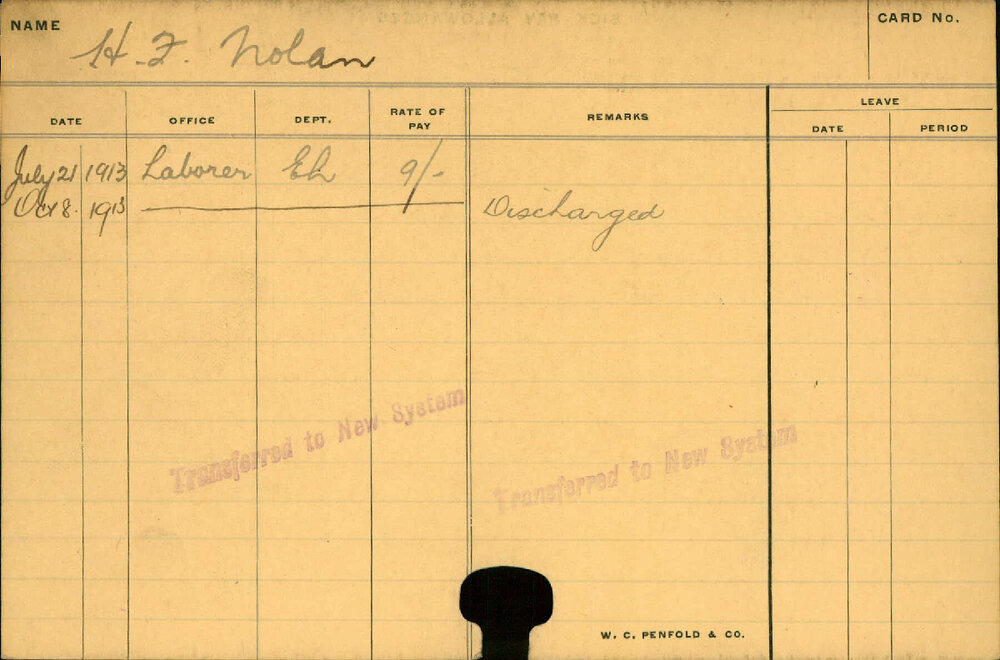 NAME H. F. Nolan CARD No.
DATE OFFICE DEPT. RATE OF PAY REMARKS LEAVE
DATE PERIOD
July 21 1913 Laborer Eh 9/-
Oct 8. 1913 Discharged
Transferred to New System
Transferred to New System
W. C. PENFOLD & CO.